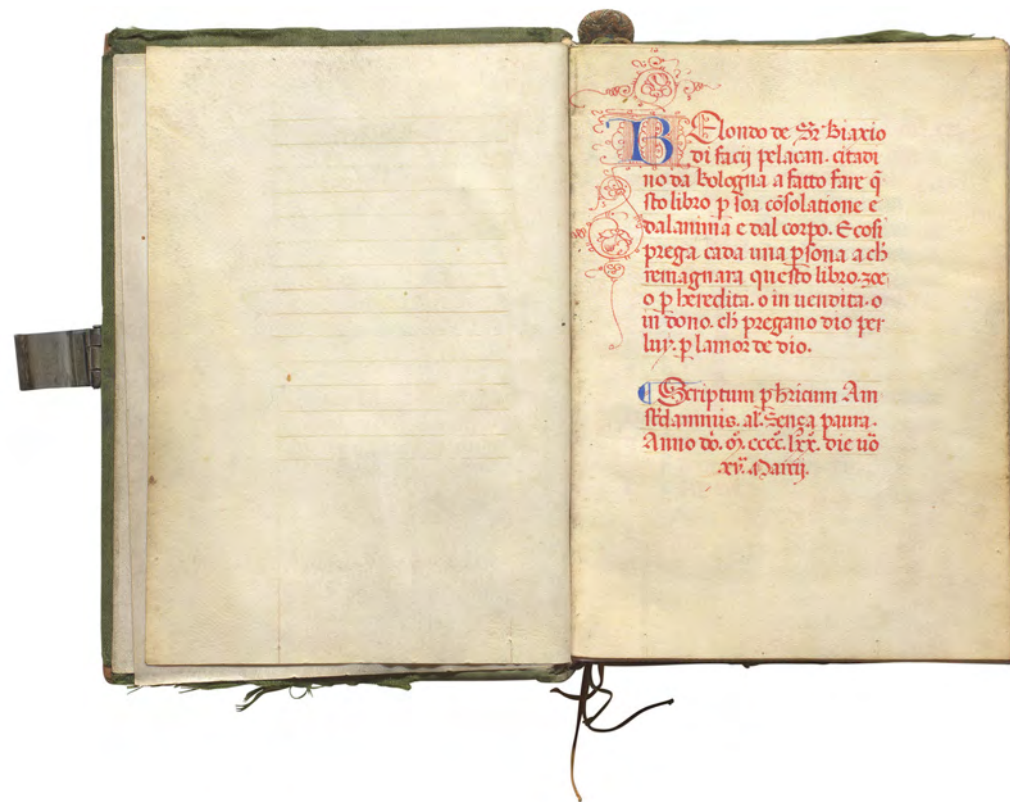 BLondo de Sr̄ Biaxio
di facij pelacan. citadi
no da bologna a fatto fare q̄
sto libro p̲ soa cōsolatione e
dalanima e dal corpo. E cosi
prega cada una p̲sona a ch̄
remagnara questo libro. zoe
o p̲ heredita. o in uendita. o
in dono. ch̄ pregano dio per
luy. p̲ lamor de dio.
Scriptum p̲ h̄ricum Am
st̄dammis. al̄. Senza paura.
Anno dō. M̄. cccc. lxx. die uō
xv. Marcij.